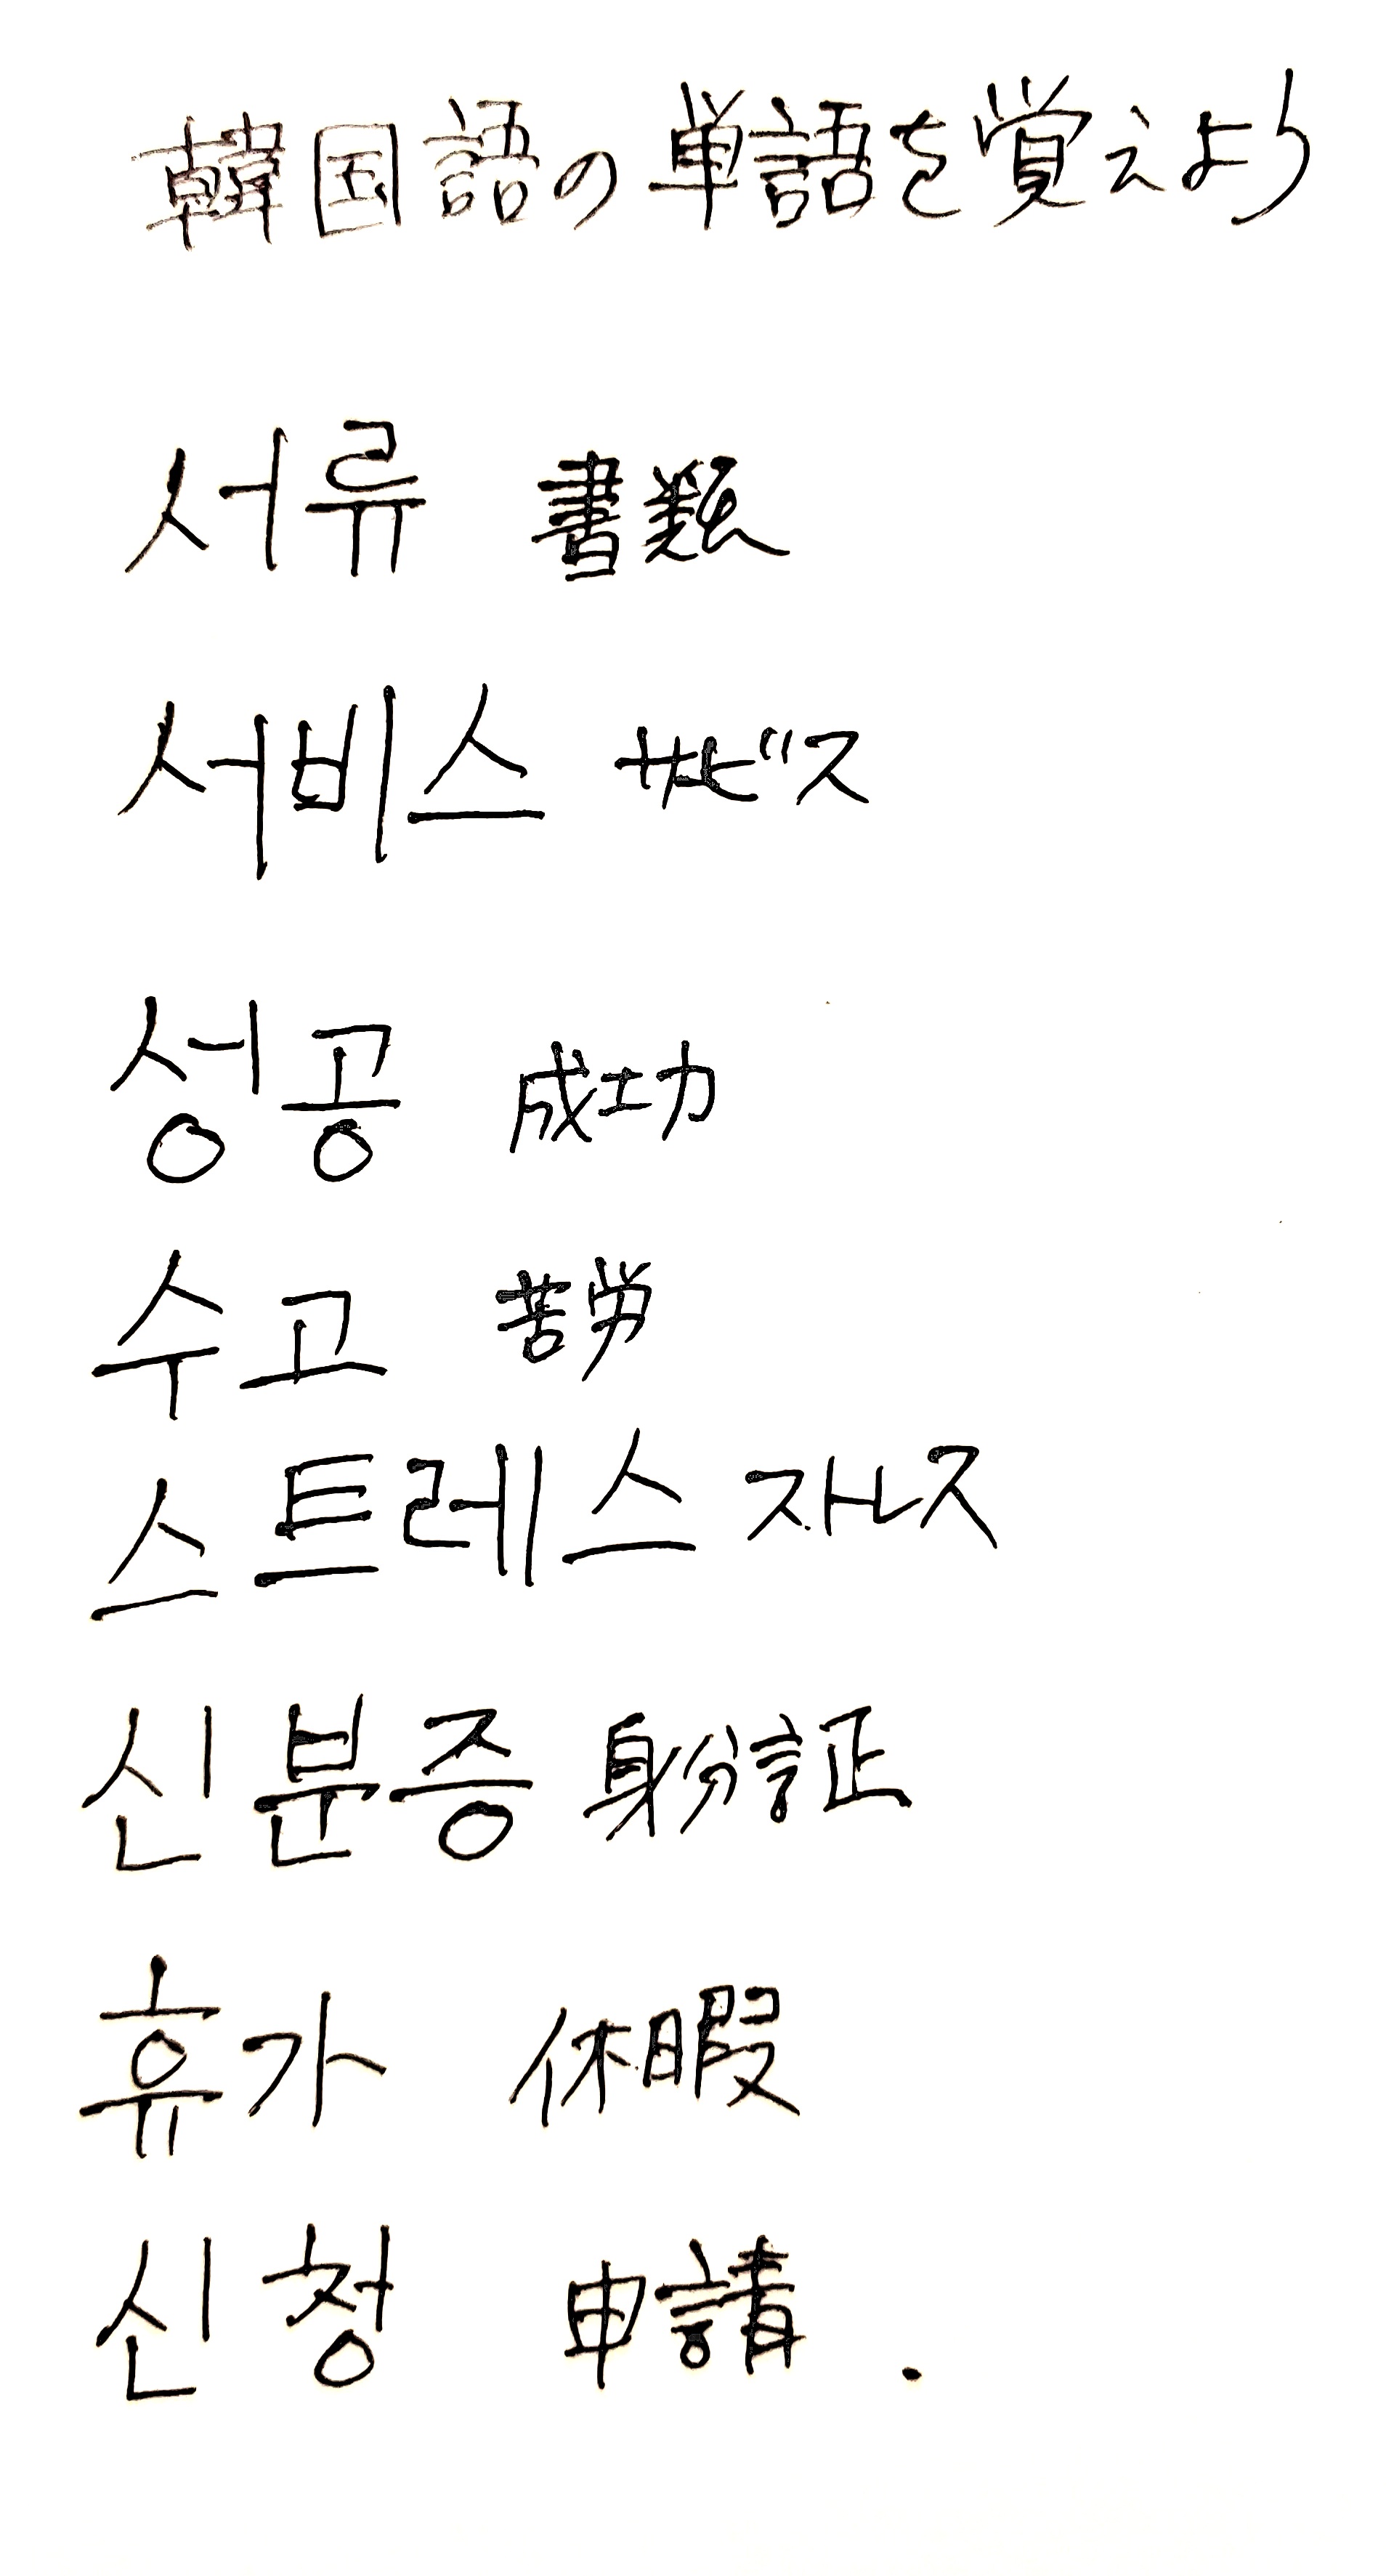 韓国語の単語を覚えよう
서류 書類
서비스 サービス
성공 成功
수고 苦労
스트레스 ストレス
신분증 身分証
휴가 休暇
신청 申請.